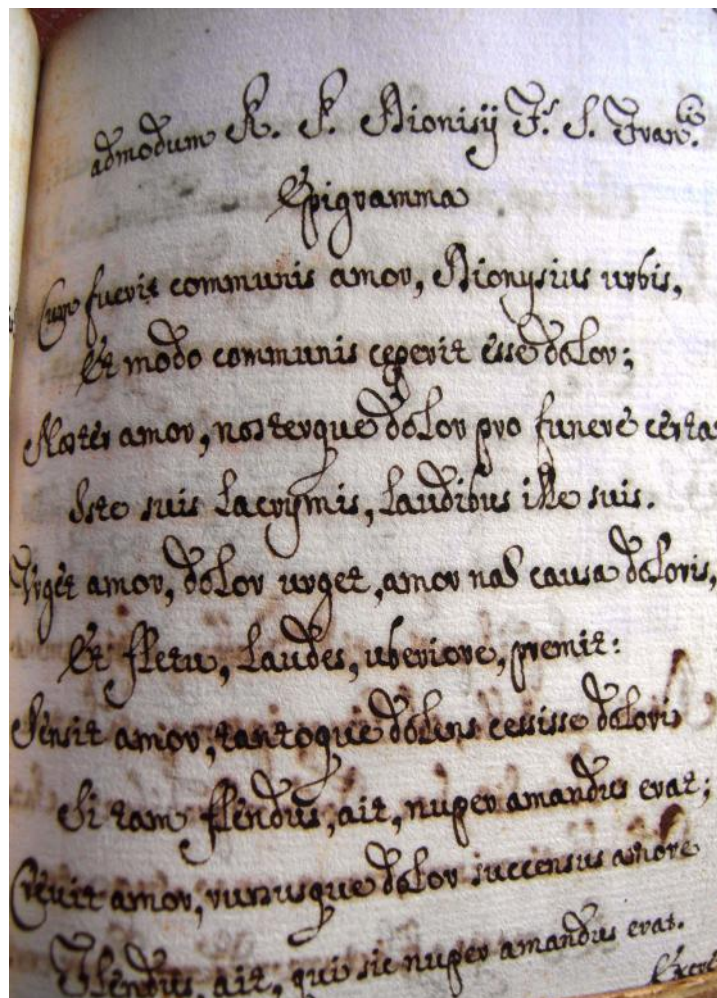 admodum R. P. Dionisij F.s S. Fran.ci
Epigramma
Cum fuerit communis amor, Dionysius urbis,
Et modo communis ceperit esse dolor;
Noster amor, nosterque dolor pro funere certa
Iste suis Lacrymis, Laudibus ille suis.
Urget amor, dolor urget, amor causa doloris,
Et fletu, Laudes, uberiore, premit:
Sensit amor, tantoque dolens cessisse dolori
Si tam flendus, ait, nuper amandus erat;
Crevit amor, rursusque dolor succensus amore
Flendus, ait, qui sic nuper amandus erat.